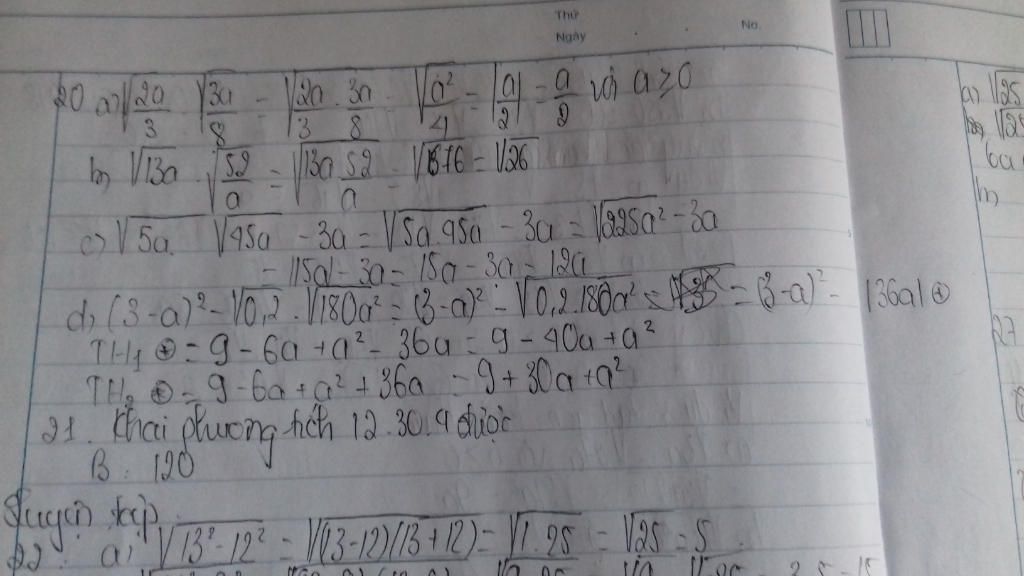 Thứ
Ngày
No.
20 a) √(2a/3) · √(3a/8) = √(2a/3 · 3a/8) = √(a²/4) = |a/2| = a/2 với a ≥ 0
b) √13a · √(52/a) = √(13a.52/a) = √676 = √26
c) √5a · √45a - 3a = √5a.45a - 3a = √225a² - 3a
= |15a| - 3a = 15a - 3a = 12a
d) (3-a)² - √0,2 . √180a² = (3-a)² - √0,2.180a² = (3-a)² - |36a| ⊛
TH₁ ⊛ = 9 - 6a + a² - 36a = 9 - 40a + a²
TH₂ ⊛ = 9 - 6a + a² + 36a = 9 + 30a + a²
21. Khai phương tích 12.30.4 được
B. 120
Luyện tập
22. a) √13²-12² = √(13-12)(13+12) = √1.25 = √25 = 5
a) √25
6a
b)
27